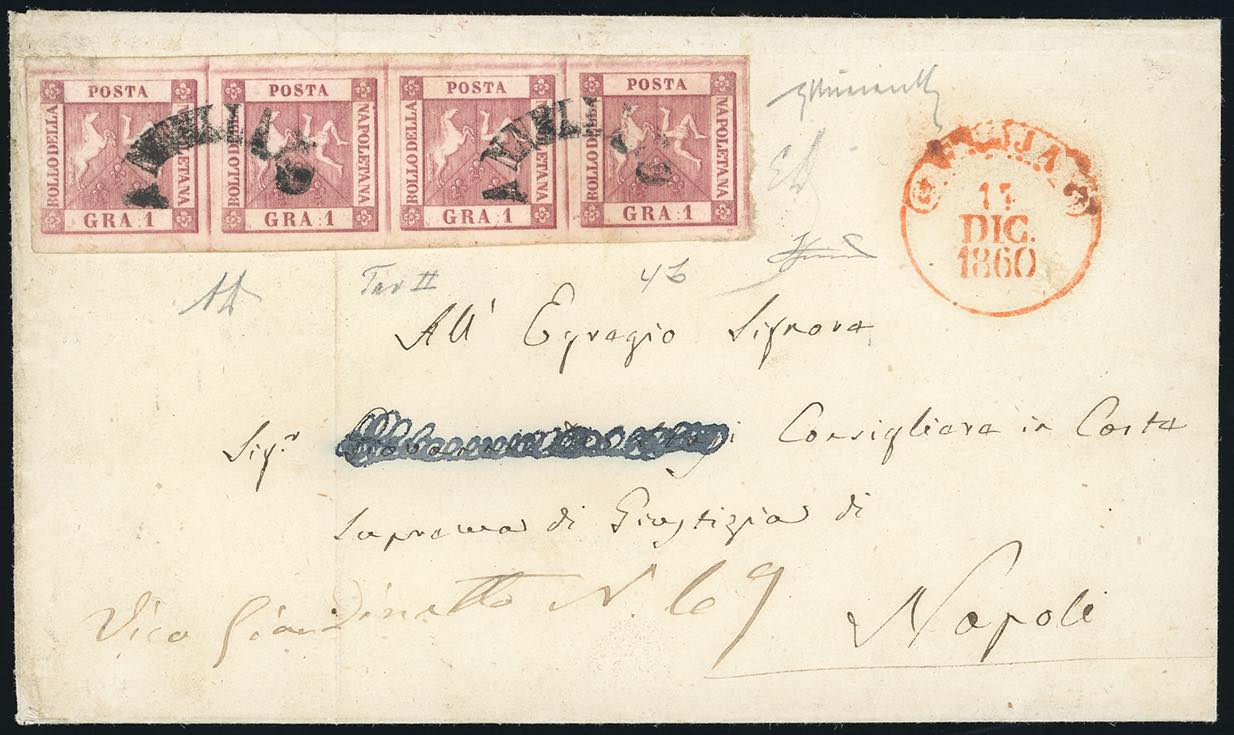 POSTA POSTA POSTA POSTA
BOLLO DELLA NAPOLETANA BOLLO DELLA NAPOLETANA BOLLO DELLA NAPOLETANA BOLLO DELLA NAPOLETANA
GRA 1 GRA 1 GRA 1 GRA 1
ANNULLATO ANNULLATO
DIC.
1860
Tav II
All' Egregio Signore
Sigr Consigliere in Corte
Suprema di Giustizia di
Napoli
Vico Giardinetto N. 69